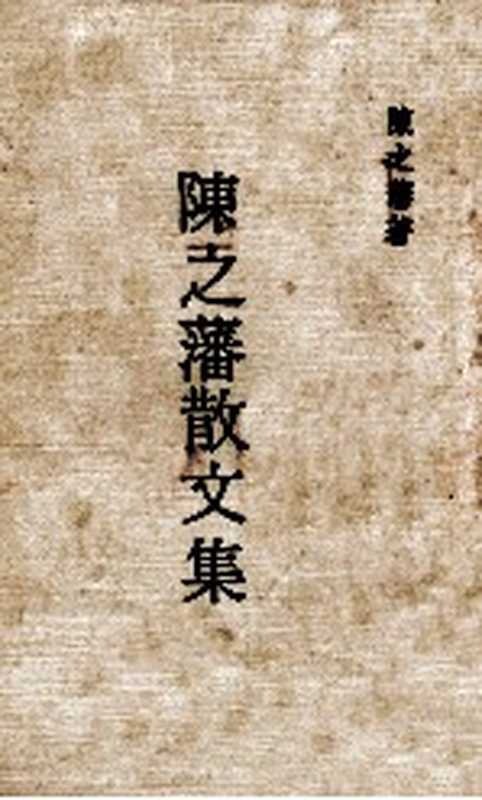 陳之藩著
陳之藩散文集